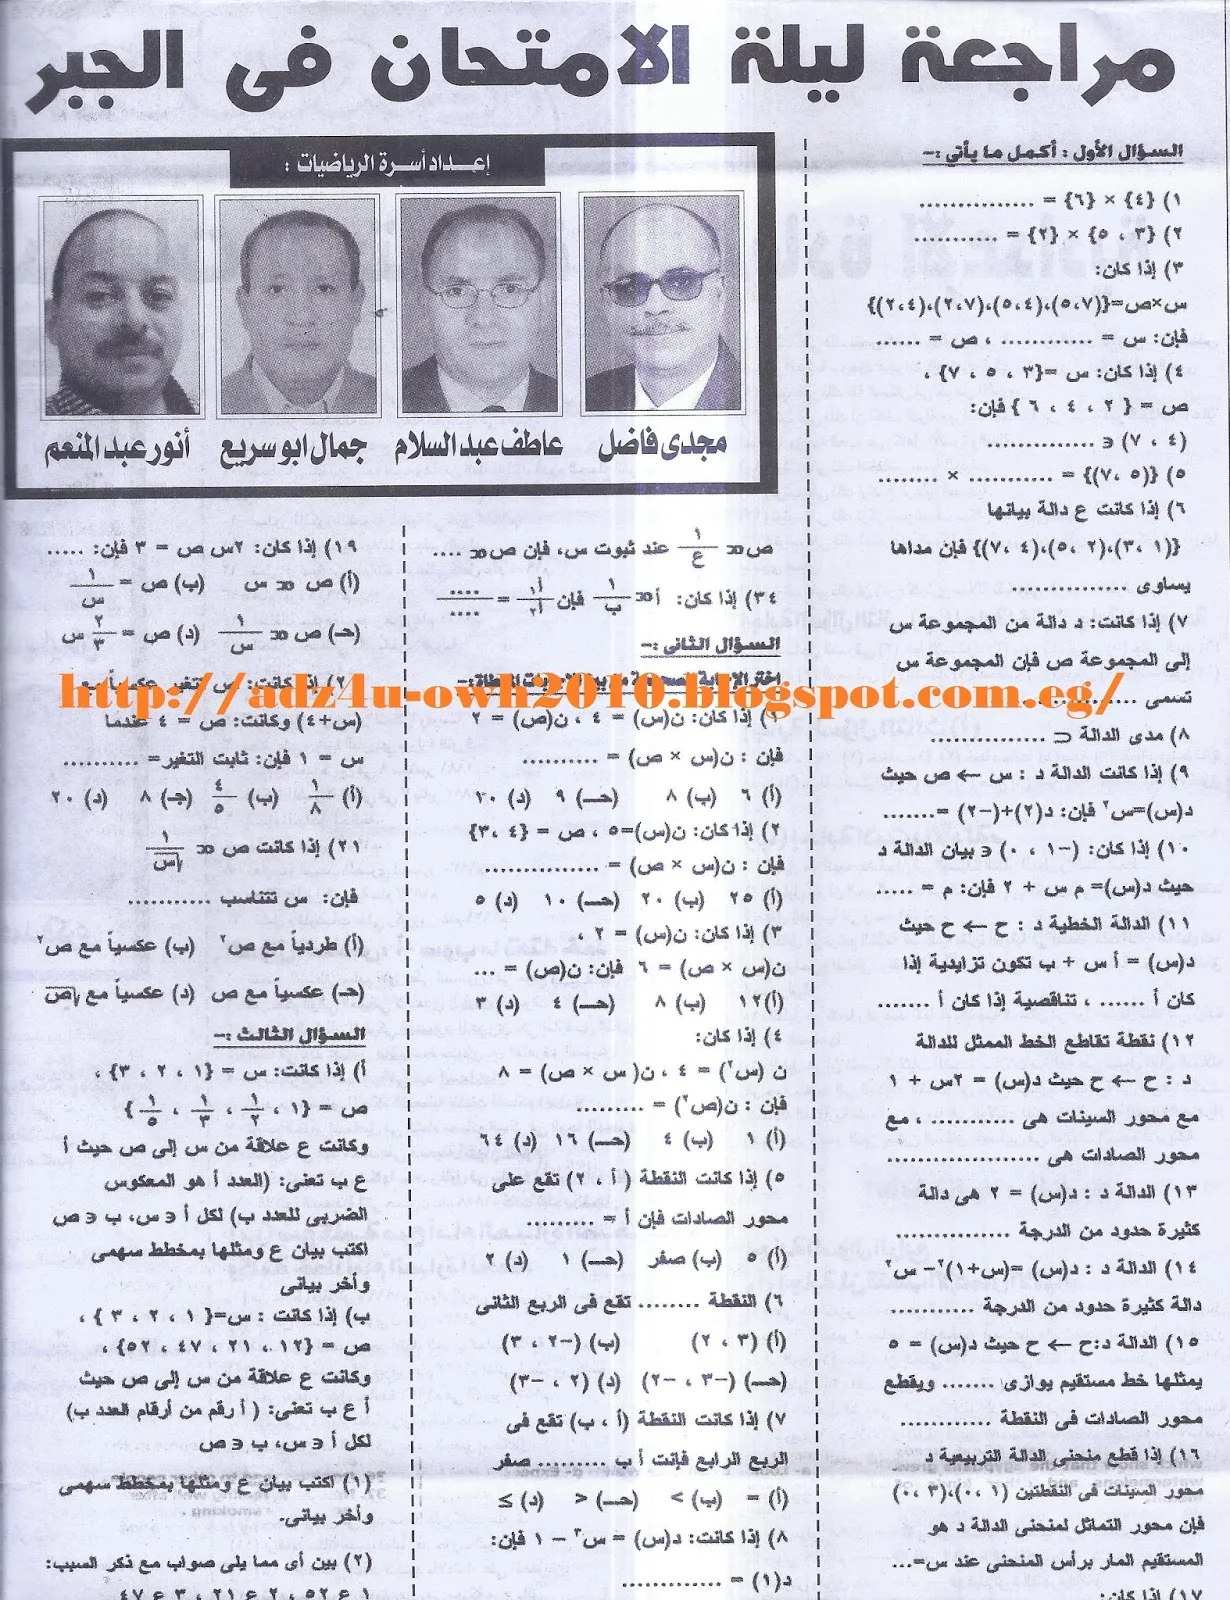 مراجعة ليلة الامتحان فى الجبر
السؤال الأول : أكمل ما يأتي :-
١) {٤} × {٦} = ...............
٢) {٣ ، ٥} × {٢} = ...........
٣) إذا كان:
س×ص={(٥،٧)،(٥،٤)،(٢،٧)،(٢،٤)}
فإن: س = ............ ، ص = ......
٤) إذا كان: س ={٣ ، ٥ ، ٧} ،
ص = { ٢ ، ٤ ، ٦ } فإن:
(٤ ، ٧) ∋ ..............
٥) {(٥ ،٧)} = ........... × ........
٦) إذا كانت ع دالة بيانها
{(١ ،٣)،(٢ ،٥)،(٤ ،٧)} فإن مداها
يساوى ...............
٧) إذا كانت: د دالة من المجموعة س
إلى المجموعة ص فإن المجموعة س
تسمى ...............
٨) مدى الدالة ⊂ ............
٩) إذا كانت الدالة د : س ← ص حيث
د(س)=س٢ فإن: د(٢)+(-٢) =.......
١٠) إذا كان: (-١ ، ٠) ∋ بيان الدالة د
حيث د(س)= م س + ٢ فإن: م = .....
١١) الدالة الخطية د : ح ← ح حيث
د(س) = أ س + ب تكون تزايدية إذا
كان أ ...... ، تناقصية إذا كان أ .......
١٢) نقطة تقاطع الخط الممثل للدالة
د : ح ← ح حيث د(س) = ٢س + ١
مع محور السينات هى ........... ، مع
محور الصادات هى ..................
١٣) الدالة د : د(س) = ٢ هى دالة
كثيرة حدود من الدرجة ...............
١٤) الدالة د : د(س) =(س+١)٢- س٢
دالة كثيرة حدود من الدرجة ...........
١٥) الدالة د:ح ← ح حيث د(س) = ٥
يمثلها خط مستقيم يوازى ....... ويقطع
محور الصادات فى النقطة ............
١٦) إذا قطع منحنى الدالة التربيعية د
محور السينات فى النقطتين (١ ،٠)،(٣ ،٠)
فإن محور التماثل لمنحنى الدالة د هو
المستقيم المار برأس المنحنى عند س=...
١٧) إذا كان:
إعداد أسرة الرياضيات :
مجدى فاضل
عاطف عبد السلام
جمال ابو سريع
أنور عبد المنعم
ص ∝ ١/ع عند ثبوت س، فإن ص ∝ ....
٣٤) إذا كان: أ ∝ ١/ب فإن أ١/أ٢ = ..../....
السؤال الثانى :-
http://adz4u-owh2010.blogspot.com.eg/
١) إذا كان: ن(س) = ٤ ، ن(ص) = ٢
فإن : ن(س × ص) = ..........
(أ) ٦ (ب) ٨ (حـ) ٩ (د) ٢٠
٢) إذا كان: ن(س)=٥ ، ص = {٤ ،٣}
فإن : ن(س × ص) = ...............
(أ) ٢٥ (ب) ٢٠ (حـ) ١٠ (د) ٥
٣) إذا كان: ن(س) = ٢ ،
ن(س × ص) = ٦ فإن: ن(ص) = ...
(أ)١٢ (ب) ٨ (حـ) ٤ (د) ٣
٤) إذا كان:
ن (س٢) = ٤ ، ن( س × ص) = ٨
فإن : ن(ص٢) = .........
(أ) ١ (ب) ٤ (حـ) ١٦ (د) ٦٤
٥) إذا كانت النقطة ( أ ، ٢) تقع على
محور الصادات فإن أ = .........
(أ) ٥ (ب) صفر (حـ) ١ (د) ٢
٦) النقطة ........ تقع فى الربع الثانى
(أ) (٣ ، ٢) (ب) (-٢ ، ٣)
(حـ) (-٣ ، -٢) (د) (٢ ، -٣)
٧) إذا كانت النقطة (أ ، ب) تقع فى
الربع الرابع فإنت أ ب ......... صفر
(أ) = (ب) > (حـ) < (د) ≥
٨) إذا كانت: د(س) = س٣ - ١ فإن:
د(١) = .............
١٩) إذا كان: ٢س ص = ٣ فإن: .....
(أ) ص ∝ س (ب) ص = ١/س
(حـ) ص ∝ ١/س (د) ص = ٢/٣ س
(س+٤) وكانت: ص = ٤ عندما
س = ١ فإن: ثابت التغير= ..........
(أ) ١/٨ (ب) ٤/٥ (جـ) ٨ (د) ٢٠
٢١) إذا كانت ص ∝ ١/√س
فإن: س تتناسب ...........
(أ) طردياً مع ص٢ (ب) عكسياً مع ص٢
(حـ) عكسياً مع ص (د) عكسياً مع √ص
السؤال الثالث :-
أ) إذا كانت: س = {١ ، ٢ ، ٣} ،
ص = {١ ، ١/٢ ، ١/٣ ، ١/٥}
وكانت ع علاقة من س إلى ص حيث أ
ع ب تعنى: (العدد أ هو المعكوس
الضربى للعدد ب) لكل أ ∋ س، ب ∋ ص
اكتب بيان ع ومثلها بمخطط سهمى
وأخر بيانى
ب) إذا كانت : س={ ١ ، ٢ ، ٣ } ،
ص = {١٢ ، ٢١ ، ٤٧ ، ٥٢} ،
وكانت ع علاقة من س إلى ص حيث
أ ع ب تعنى: ( أ رقم من أرقام العدد ب)
لكل أ ∋ س، ب ∋ ص
(١) اكتب بيان ع ومثلها بمخطط سهمى
وأخر بيانى.
(٢) بين أى مما يلى صواب مع ذكر السبب:
١ ع ٥٢ ، ٢ ع ٢١ ، ٣ ع ٤٧